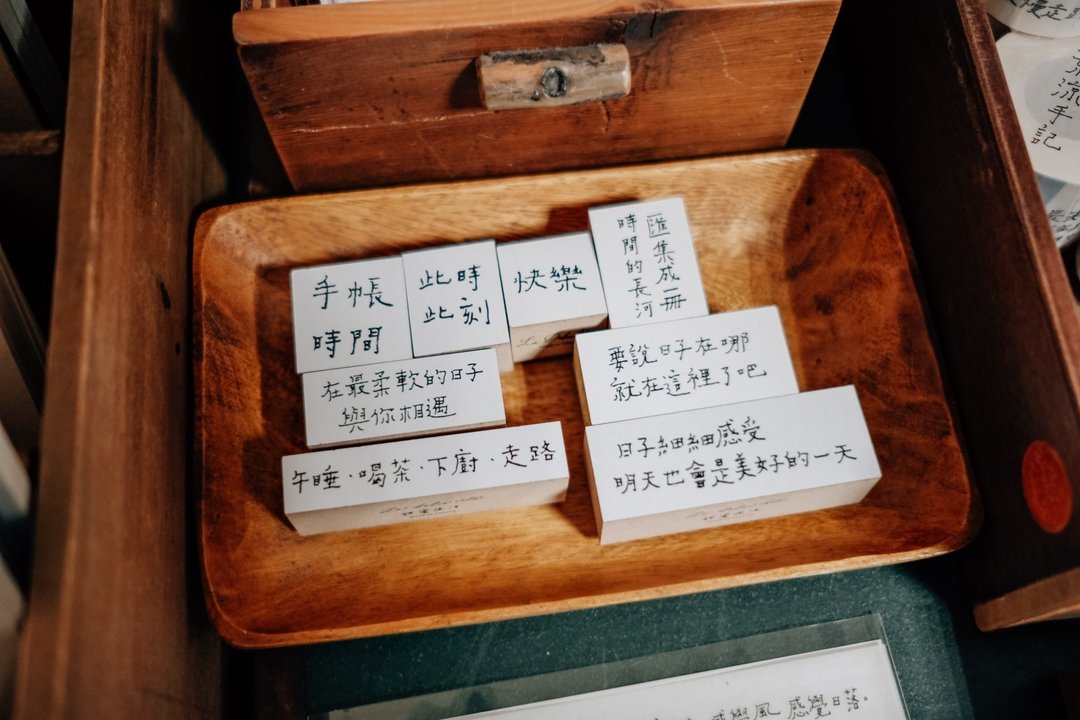 手帳
時間
此時
此刻
快樂
匯集成一冊
時間的長河
在最柔軟的日子
與你相遇
要說日子在哪
就在這裡了吧
午睡、喝茶、下廚、走路
日子細細感受
明天也會是美好的一天
慢走路
流手記
風 感覺日落。